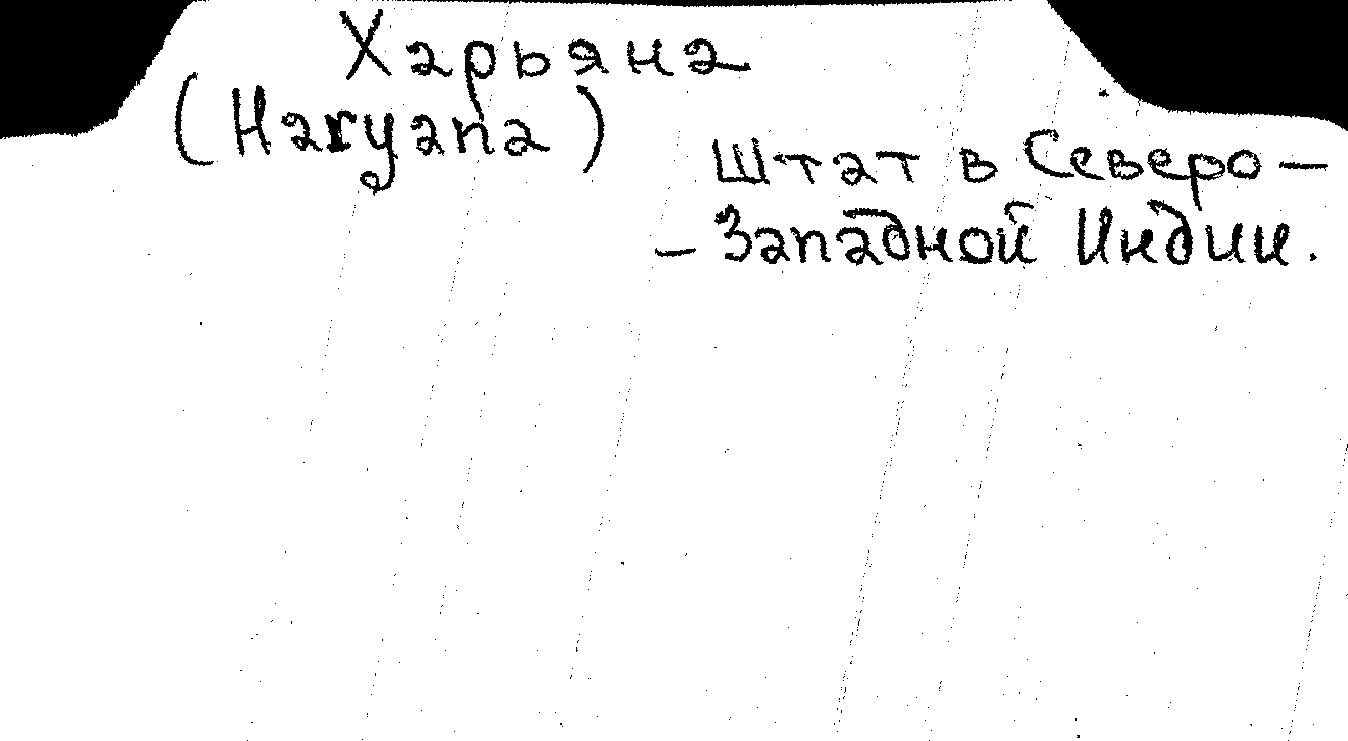 Харьяна
(Haryana)
Штат в Северо-
-Западной Индии.